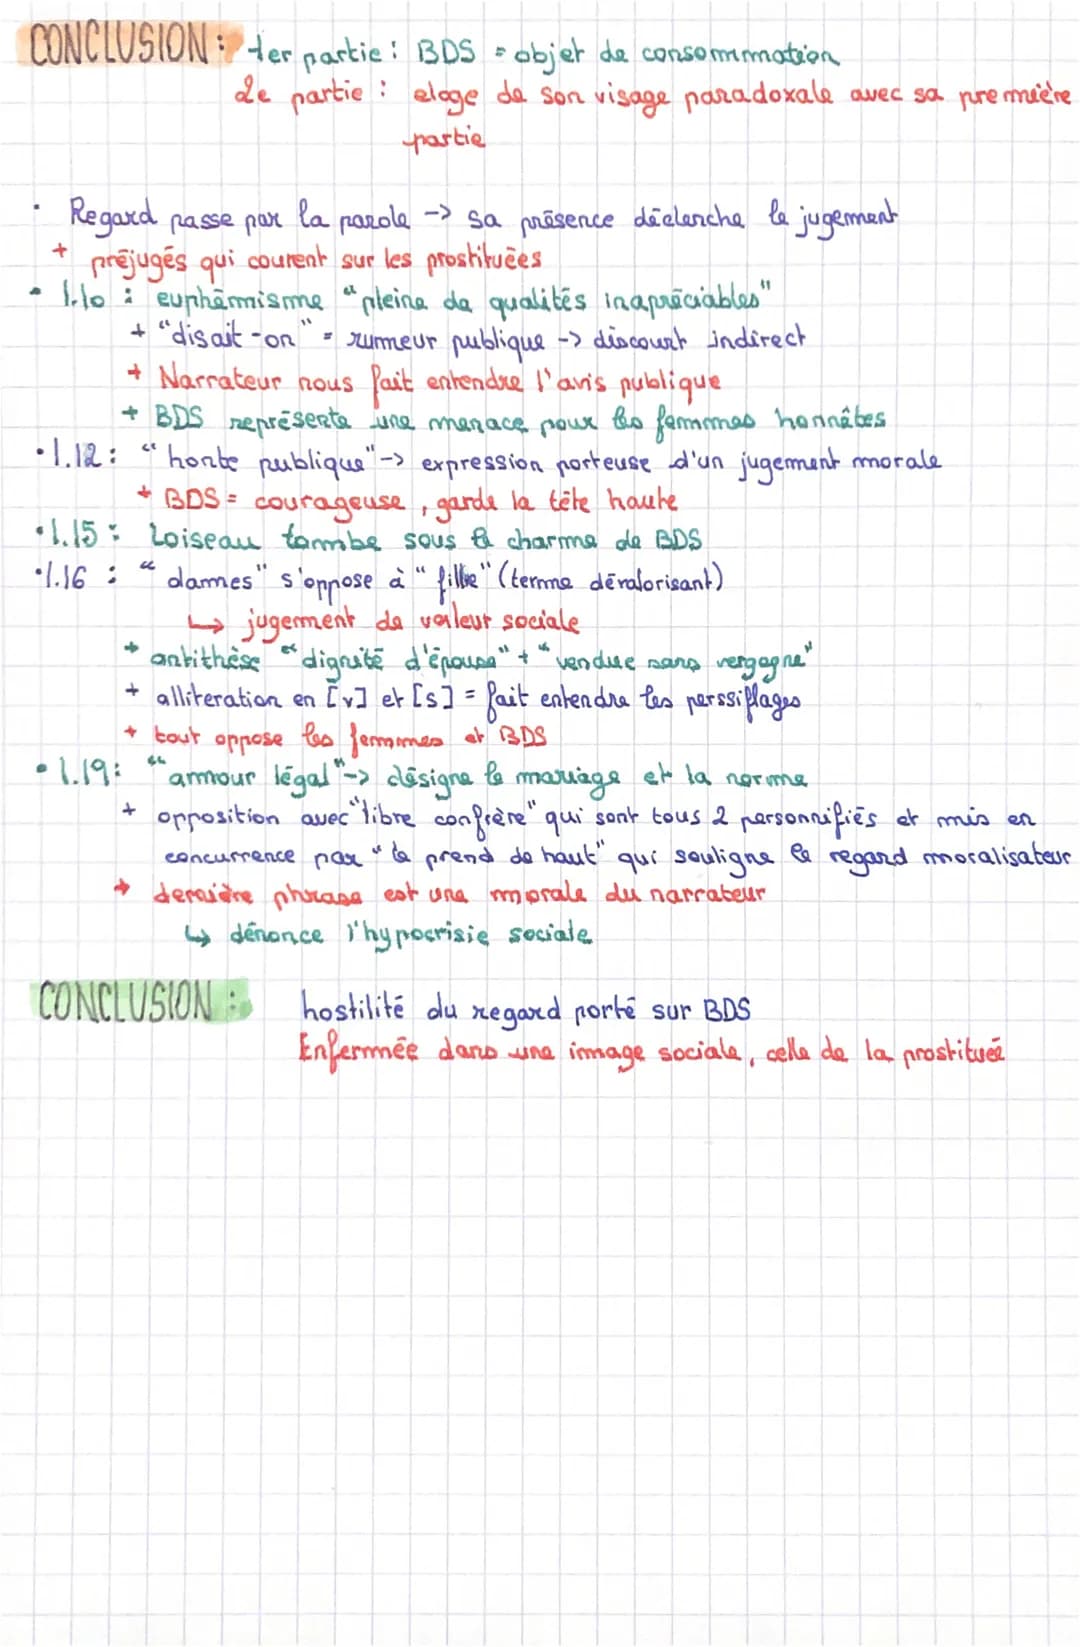 CONCLUSION : 1er partie : BDS = objet de consommation
2e partie : eloge de son visage paradoxale avec sa première
partie
• Regard passe par la parole -> sa présence déclenche le jugement
+ préjugés qui courent sur les prostituées
• l.10 : euphémisme "pleine de qualités inapréciables"
+ "disait-on" = rumeur publique -> discourt indirect
+ Narrateur nous fait entendre l'avis publique
+ BDS représente une menace pour les femmes honnêtes
• l.12 : "honte publique" -> expression porteuse d'un jugement morale
+ BDS = courageuse, garde la tête haute
• l.15 : Loiseau tombe sous le charme de BDS
• l.16 : "dames" s'oppose à "fille" (terme dévalorisant)
↳ jugement de valeur sociale
+ antithèse "dignité d'épouse" + "vendue sans vergogne"
+ alliteration en [v] et [s] = fait entendre les perssiflages
+ tout oppose les femmes et BDS
• l.19 : "amour légal" -> désigne le mariage et la norme
+ opposition avec "libre confrère" qui sont tous 2 personnifiés et mis en
concurrence par "le prend de haut" qui souligne le regard moralisateur
+ dernière phrase est une morale du narrateur
↳ dénonce l'hypocrisie sociale
CONCLUSION : hostilité du regard porté sur BDS
Enfermée dans une image sociale, celle de la prostituée